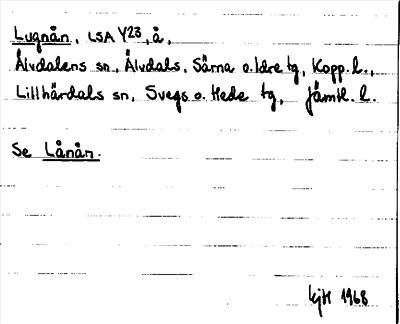 Lugnån, LSA Y23, å,
Älvdalens sn, Älvdals, Särna o. Idre tg, Kopp. l.,
Lillhärdals sn, Svegs o. Hede tg, Jämtl. l.
Se Lånån.
1968